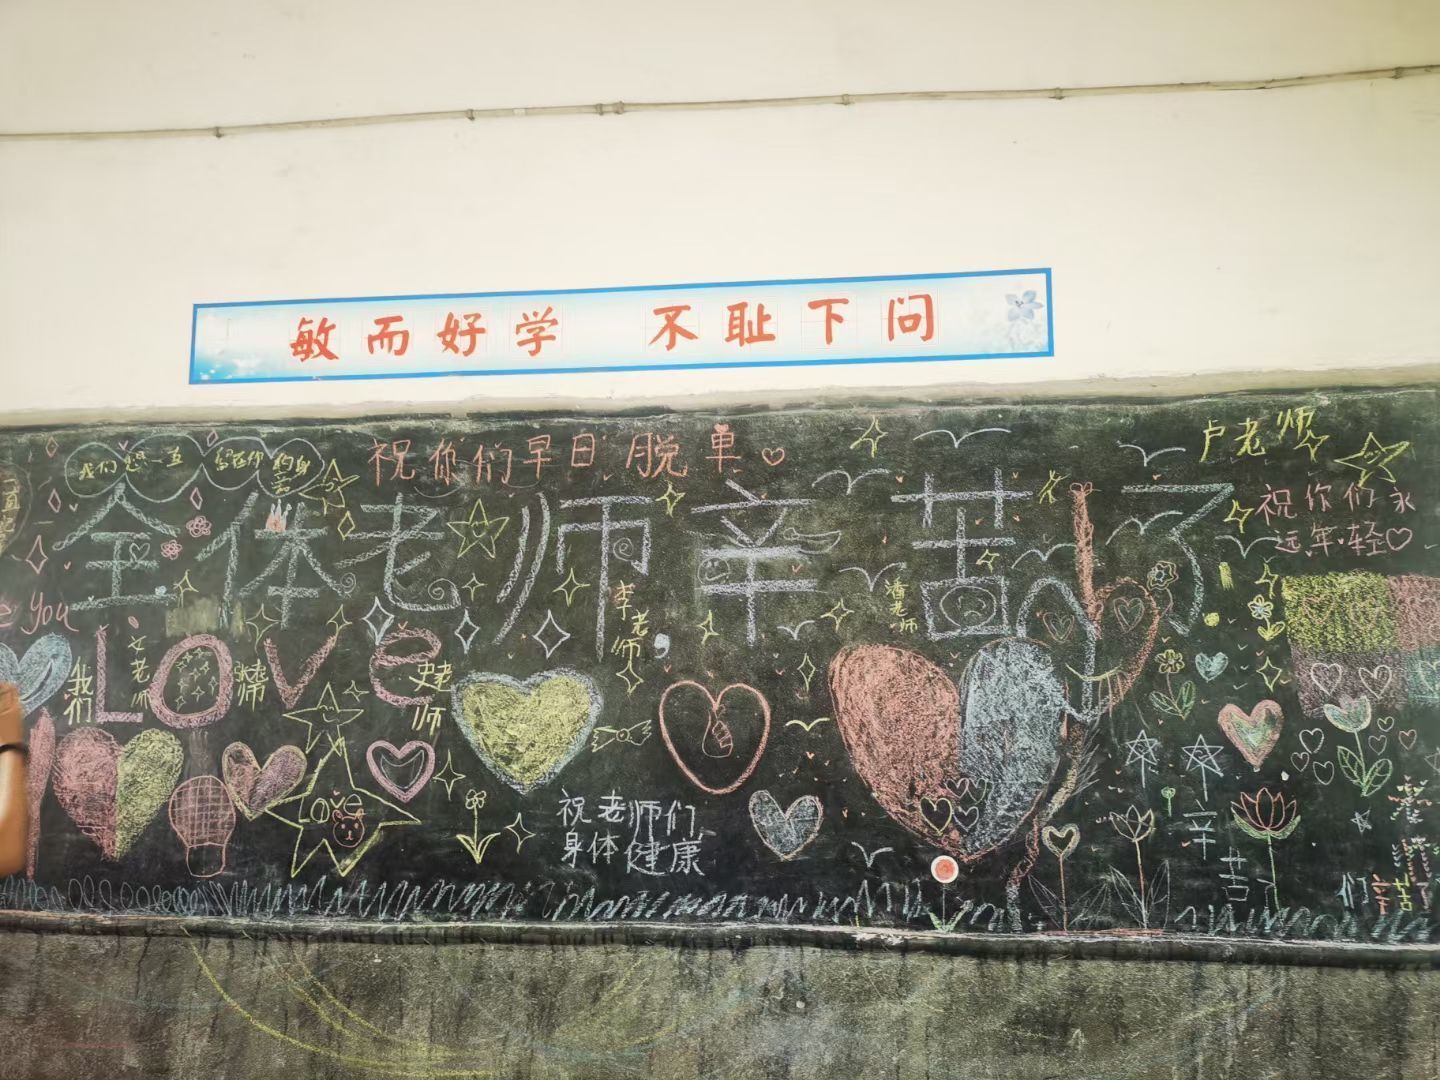 敏而好学 不耻下问
祝你们早日脱单
卢老师
祝你们永
远年轻
全体老师辛苦了
e you
Love
我们
文老师
李老师
潘老师
Love
祝老师们
身体健康
辛苦了
们辛苦了